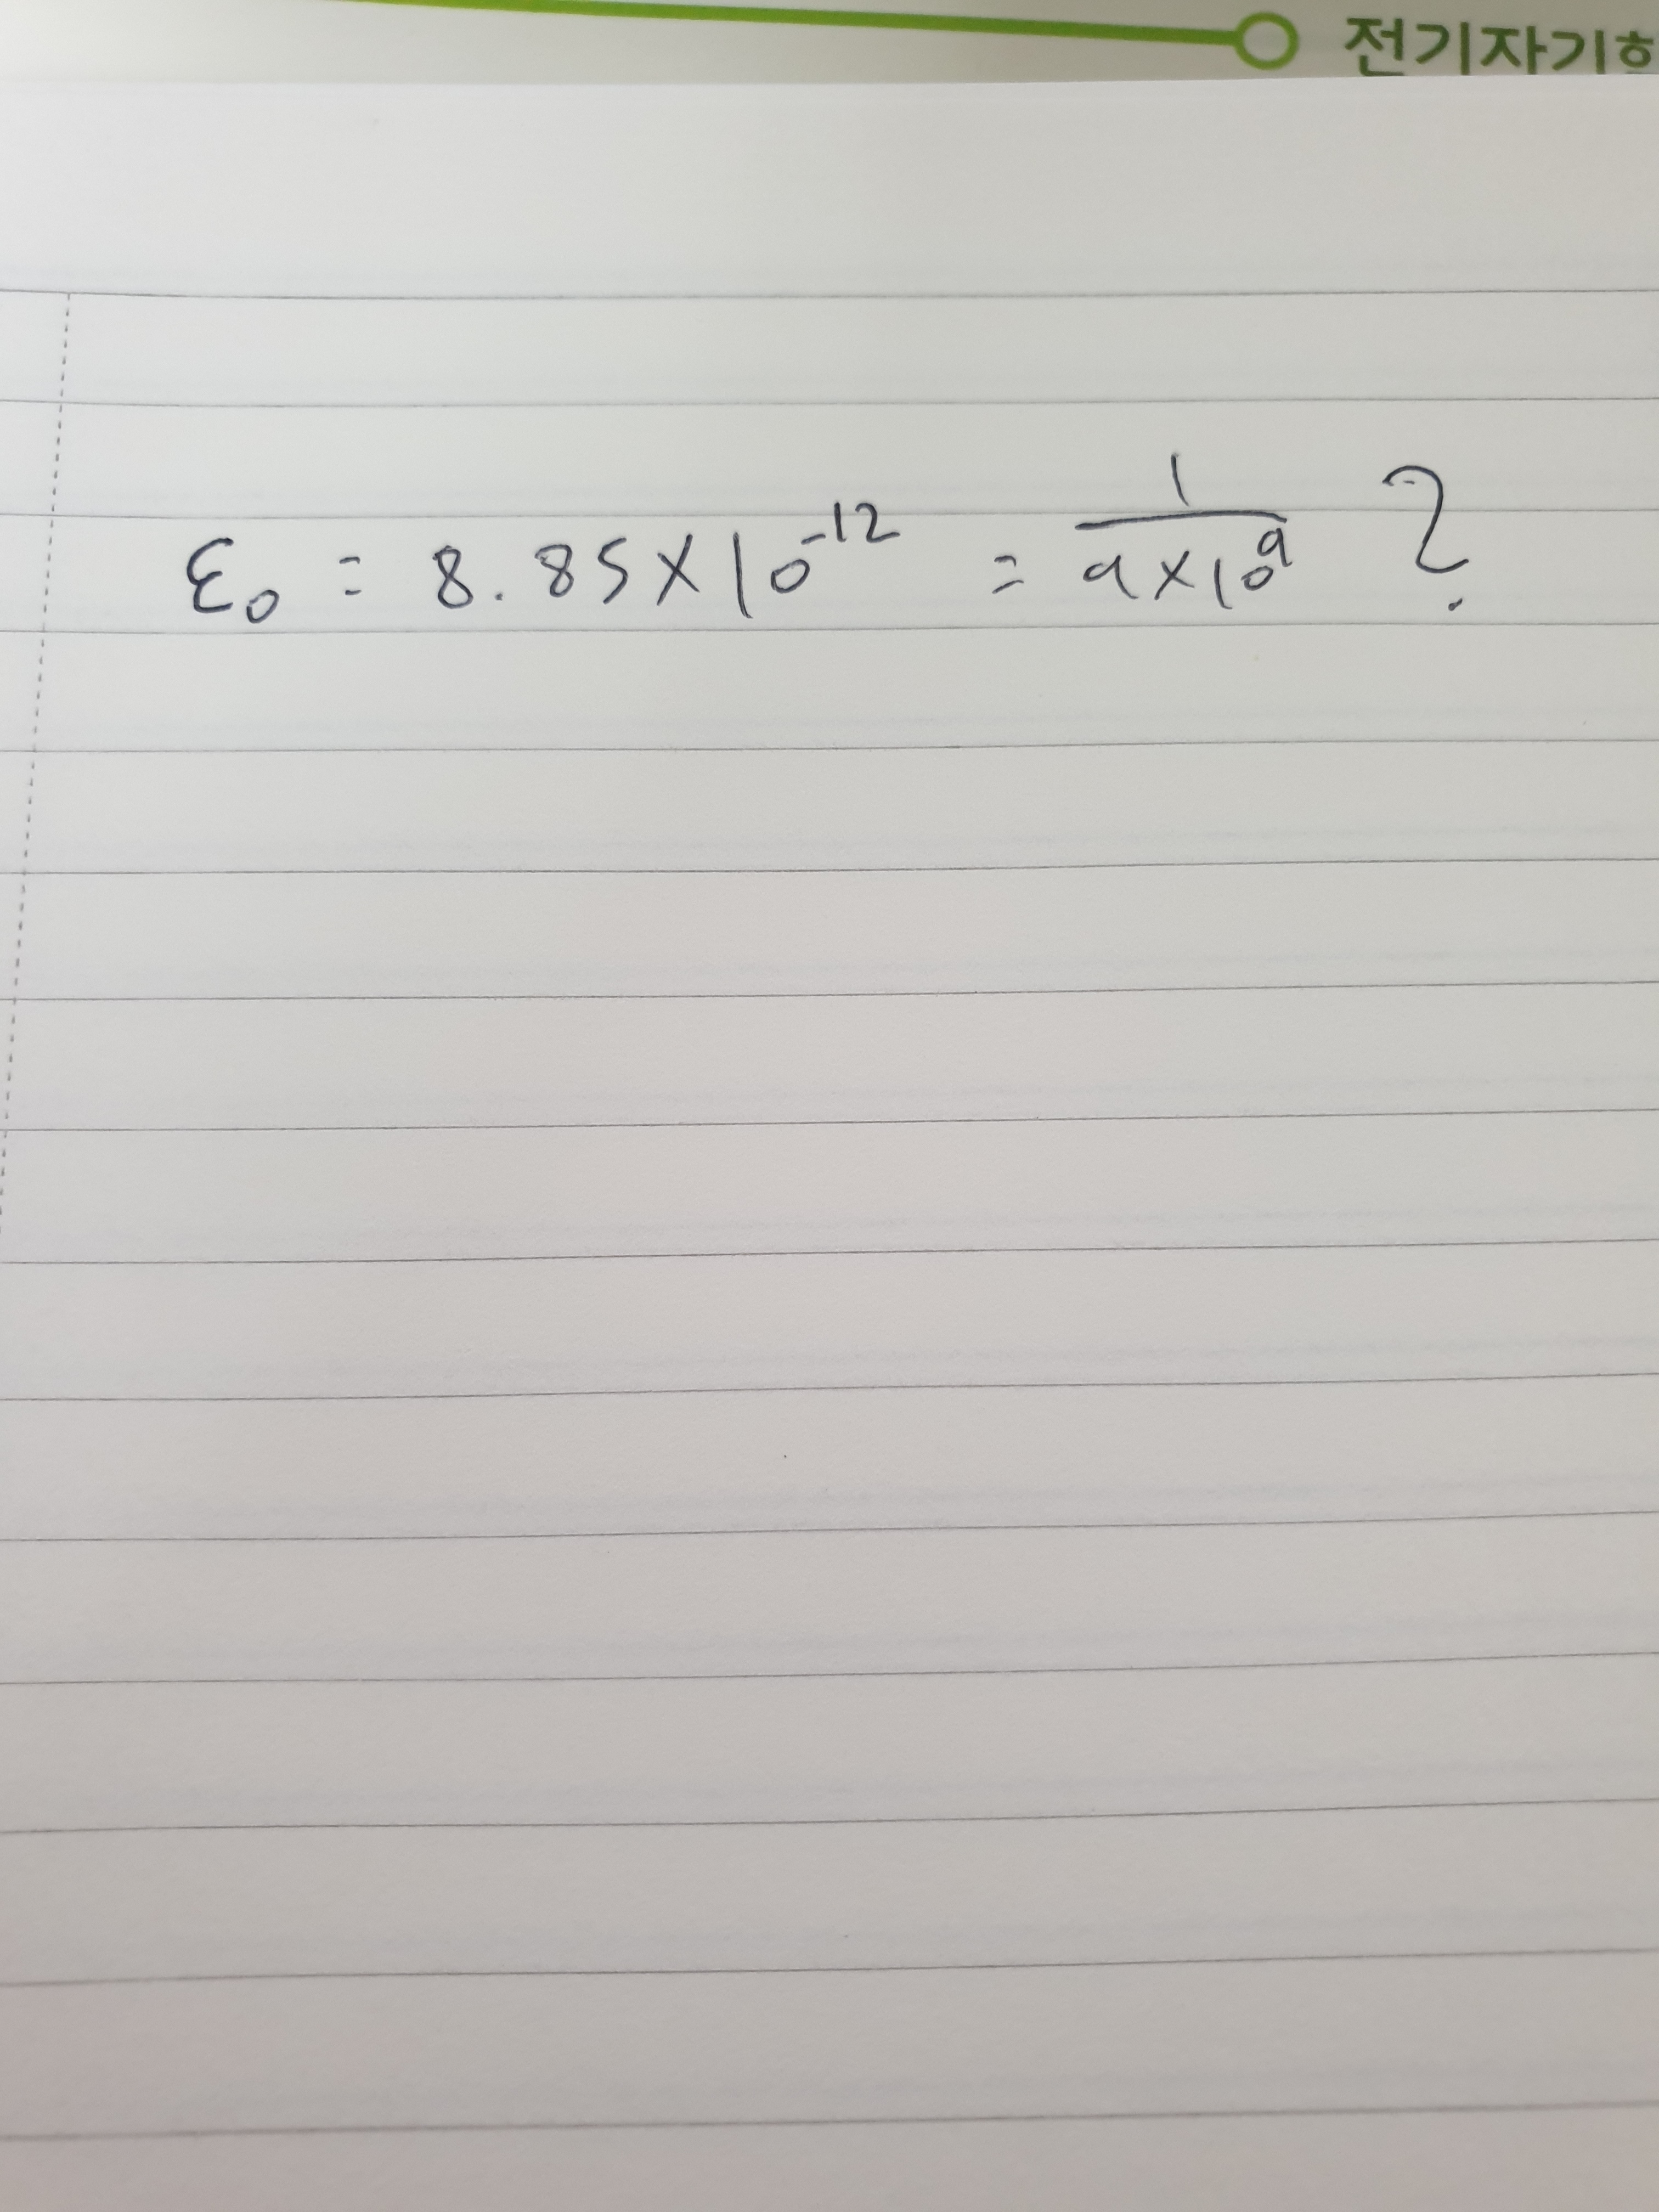 전기자기학
ε₀ = 8.85×10⁻¹² = 1/(9×10⁹) ?